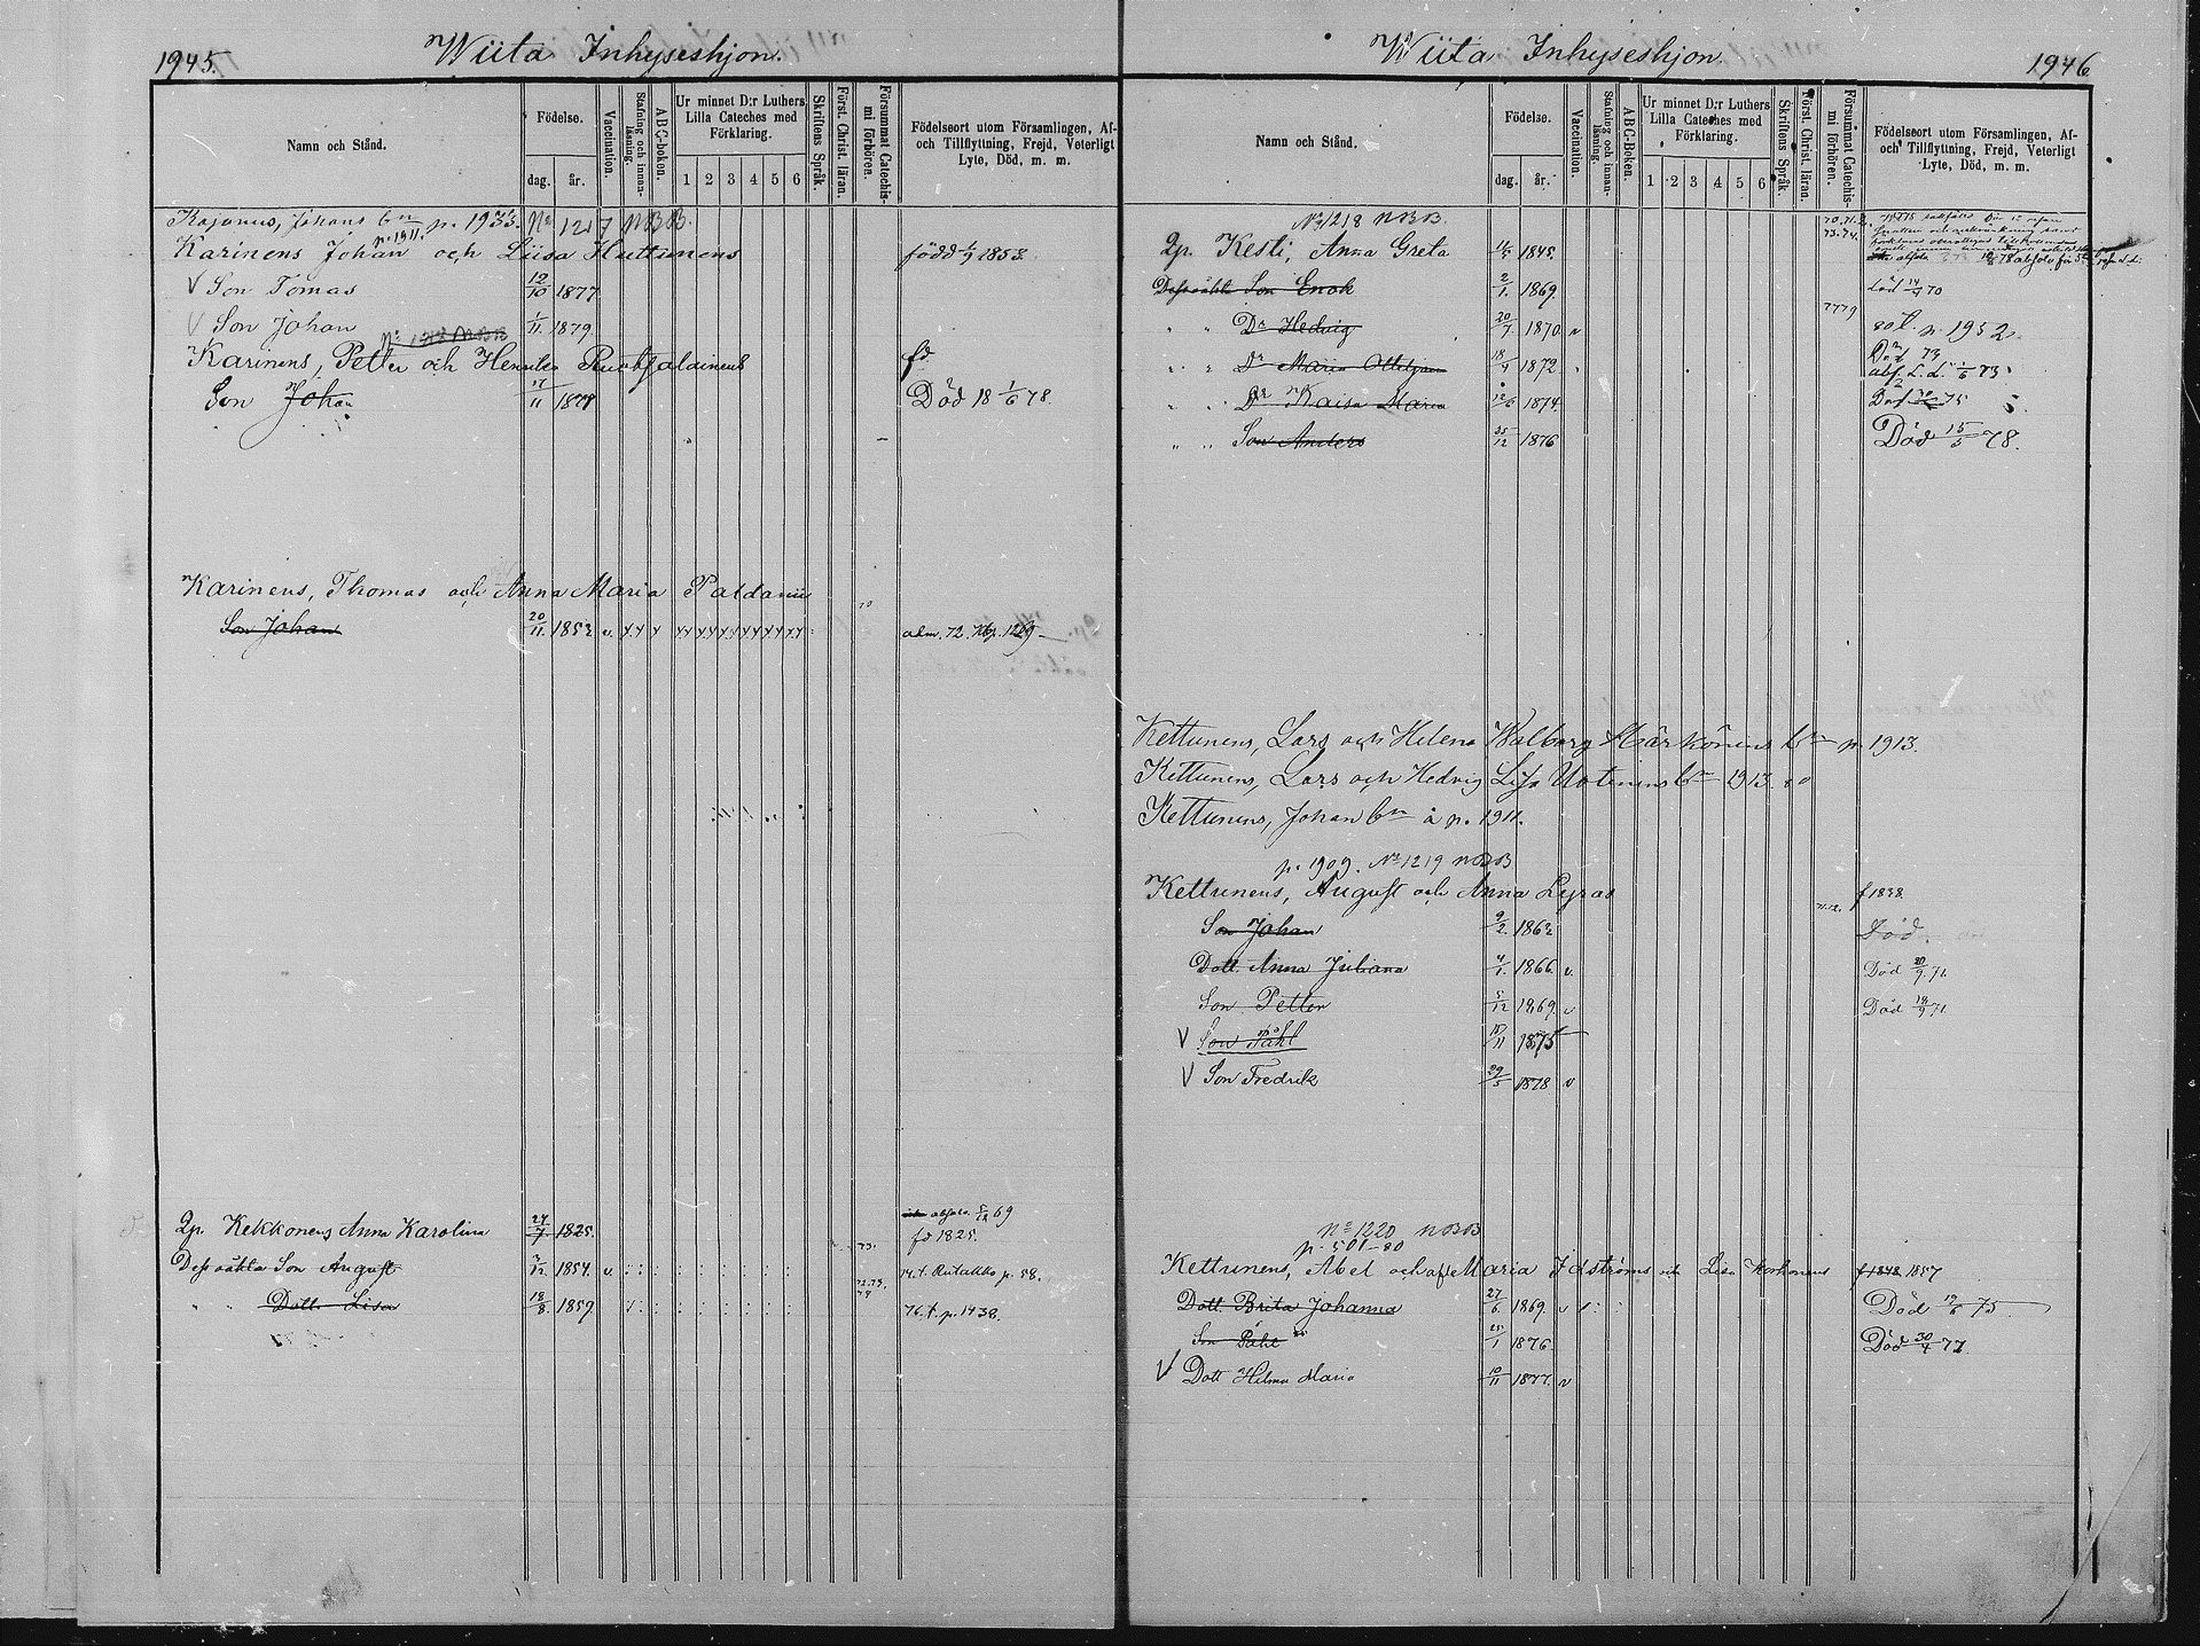 1945.
Wiita Inhyseshjon.
Namn och Stånd.
Födelse.
dag.
år.
Vaccination.
Stafning och innan-läsning.
ABC-boken.
Ur minnet D:r Luthers
Lilla Cateches med
Förklaring.
1 2 3 4 5 6
Skriftens Språk.
Först. Christ. läran.
Försummat Catechis-
mi förhören.
Födelseort utom Församlingen, Af-
och Tillflyttning, Frejd, Veterligt
Lyte, Död, m. m.
Kajanus, Johans bn p. 1933. No 1217 NBB.
p. 1911.
Karinens Johan och Liisa Huttunens född 1853.
V Son Tomas 12/10 1877
V Son Johan 1/11 1879.
Karinens, Petter och Henrika fd
Son Johan 1878 Död 18 1/6 78.
Karinens, Thomas och Anna Maria Paldanii
70
Son Johan 20/11 1852 v.
Qp. Kekkonens Anna Karolina 24/7 1825. fd 1825.
73.
Dess oäkta Son August 1854. v. 74. t. Rutakko p. 58.
" " Dott. Lisa 18/8 1859. 76. t. p. 1438.
Wiita Inhyseshjon.
1946
Namn och Stånd.
Födelse.
dag.
år.
Vaccination.
Stafning och innan-läsning.
ABC-Boken.
Ur minnet D:r Luthers
Lilla Cateches med
Förklaring.
1 2 3 4 5 6
Skriftens Språk.
Först. Christ. läran.
Försummat Catechis-
mi förhören.
Födelseort utom Församlingen, Af-
och Tillflyttning, Frejd, Veterligt
Lyte, Död, m. m.
No 1218 NBB.
70.71.
73.74.
Qp. Kesti, Anna Greta 1845.
Dess oäkta Son Enok 2/1. 1869. död 70
7779
" " Dr Hedvig 20/7. 1870. v p. 1952.
" " Dr Maria 18/4 1872 Död 73
" " Dr Kaisa Maria 12/6 1874. Död 75
" " Son Anders 25/12 1876 Död 15/5 78.
Kettunens, Lars och Helena Walborg Härkönens bn p. 1913.
Kettunens, Lars och Hedvig Lisa bn 1913.
Kettunens, Johan bn å p. 1911.
p. 1909. No 1219 NBB
Kettunens, August och Anna Lyras f 1838.
71.72.
Son Johan 9/2. 1862 Död.
Dott. Anna Juliana 4/1. 1866. v. Död 71.
Son Petter 5/12 1869. v Död 71
V Son Påhl 1875
V Son Fredrik 29/5 1878 v
No 1220 NBB
p. 501-80
Kettunens, Abel och Maria Idströms och Lisa Korhonens f 1848 1857
Dott Brita Johanna 27/6 1869. v Död 19/6 75
Son Påhl 25/1 1876. Död 30/4 77.
V Dott Hilma Maria 10/11 1877. v